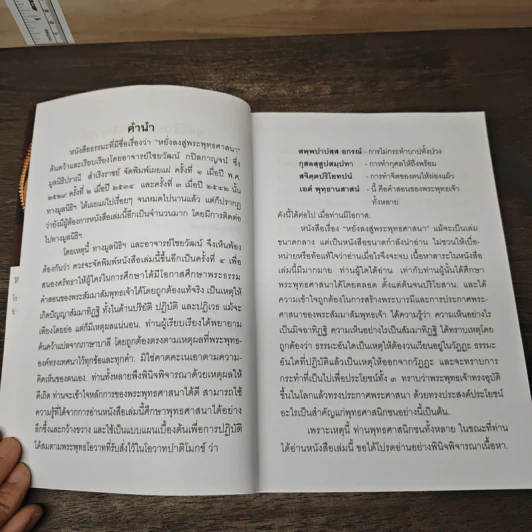 คำนำ
หนังสือธรรมะที่มีชื่อเรื่องว่า "หยั่งลงสู่พระพุทธศาสนา"
ค้นคว้าและเรียบเรียงโดยอาจารย์ไชยวัฒน์ กปิลกาญจน์ ซึ่ง
มูลนิธิปราณี สำเริงราชย์ จัดพิมพ์เผยแผ่ ครั้งที่ ๑ เมื่อปี พ.ศ.
ครั้งที่ ๒ เมื่อปี และครั้งที่ ๓ เมื่อปี นั้น
ทางมูลนิธิฯ ได้เผยแผ่ไปเรื่อยๆ จนหมดไปนานแล้ว แต่ก็ปรากฏ
ว่ายังมีผู้ต้องการหนังสือเล่มนี้อีกเป็นจำนวนมาก โดยมีการติดต่อ
ไปทางมูลนิธิฯ
โดยเหตุนี้ ทางมูลนิธิฯ และอาจารย์ไชยวัฒน์ จึงเห็นพ้อง
ต้องกันว่า ควรจะจัดพิมพ์หนังสือเล่มนี้ขึ้นอีกเป็นครั้งที่ ๔ เพื่อ
สนองศรัทธาให้ผู้ใคร่ในการศึกษาได้มีโอกาสศึกษาพระธรรม
คำสอนของพระสัมมาสัมพุทธเจ้าได้โดยถูกต้องแท้จริง เป็นเหตุให้
เกิดปัญญาสัมมาทิฏฐิ ทั้งในด้านปริยัติ ปฏิบัติ และปฏิเวธ แม้จะ
เพียงโดยย่อ แต่ก็มีเหตุผลแน่นอน ท่านผู้เรียบเรียงได้พยายาม
ค้นคว้าแปลจากภาษาบาลี โดยถูกต้องตรงตามเหตุผลที่พระพุทธ-
องค์ทรงเทศนาไว้ทุกข้อและทุกคำ มิใช่คาดคะเนเอาตามความ-
คิดเห็นของตนเอง ท่านทั้งหลายพึงพินิจพิจารณาด้วยเหตุผลให้
ดีเถิด ท่านจะเข้าใจหลักการของพระพุทธศาสนาได้ดี สามารถใช้
ความรู้ที่ได้จากการอ่านหนังสือเล่มนี้ศึกษาพุทธศาสนาได้อย่าง
ลึกซึ้งและกว้างขวาง และใช้เป็นแบบแผนเบื้องต้นเพื่อการปฏิบัติ
ได้สมตามพระพุทธโอวาทที่รับสั่งไว้ในโอวาทปาติโมกข์ ว่า
สพฺพปาปสฺส อกรณํ - การไม่กระทำบาปทั้งปวง
กุสลสฺสูปสมฺปทา - การทำกุศลให้ถึงพร้อม
สจิตฺตปริโยทปนํ - การทำจิตของตนให้ผ่องแผ้ว
เอตํ พุทฺธานสาสนํ - นี้ คือคำสอนของพระพุทธเจ้า
ทั้งหลาย
ดังนี้ได้ต่อไป เมื่อท่านมีโอกาส.
หนังสือเรื่อง "หยั่งลงสู่พระพุทธศาสนา" แม้จะเป็นเล่ม
ขนาดกลาง แต่เป็นหนังสือขนาดกำลังน่าอ่าน ไม่ชวนให้เบื่อ-
หน่ายหรือท้อแท้ใจว่าอ่านเมื่อไรจึงจะจบ เนื้อหาสาระในหนังสือ
เล่มนี้มีมากมาย ท่านผู้ใดได้อ่าน เท่ากับท่านผู้นั้นได้ศึกษา
พระพุทธศาสนาได้โดยตลอด ตั้งแต่ต้นจนปริโยสาน. และได้
ความเข้าใจถูกต้องในการสร้างพระบารมีและการประกาศพระ-
ศาสนาของพระสัมมาสัมพุทธเจ้า ได้ความรู้ว่า ความเห็นอย่างไร
เป็นมิจฉาทิฏฐิ ความเห็นอย่างไรเป็นสัมมาทิฏฐิ ได้ทราบเหตุโดย
ถูกต้องว่า ธรรมะอันใดเป็นเหตุให้ต้องวนเวียนอยู่ในวัฏฏะ ธรรมะ
อันใดที่ปฏิบัติแล้วเป็นเหตุให้ออกจากวัฏฏะ และจะทราบการ
กระทำที่เป็นไปเพื่อประโยชน์ทั้ง ๓ ทราบว่าพระพุทธเจ้าทรงอุบัติ
ขึ้นในโลกแล้วทรงประกาศพระศาสนา ด้วยทรงประสงค์ประโยชน์
อะไรเป็นสำคัญแก่พุทธศาสนิกชนอย่างนี้เป็นต้น.
เพราะเหตุนี้ ท่านพุทธศาสนิกชนทั้งหลาย ในขณะที่ท่าน
ได้อ่านหนังสือเล่มนี้ ขอได้โปรดอ่านอย่างพินิจพิจารณาเนื้อหา.